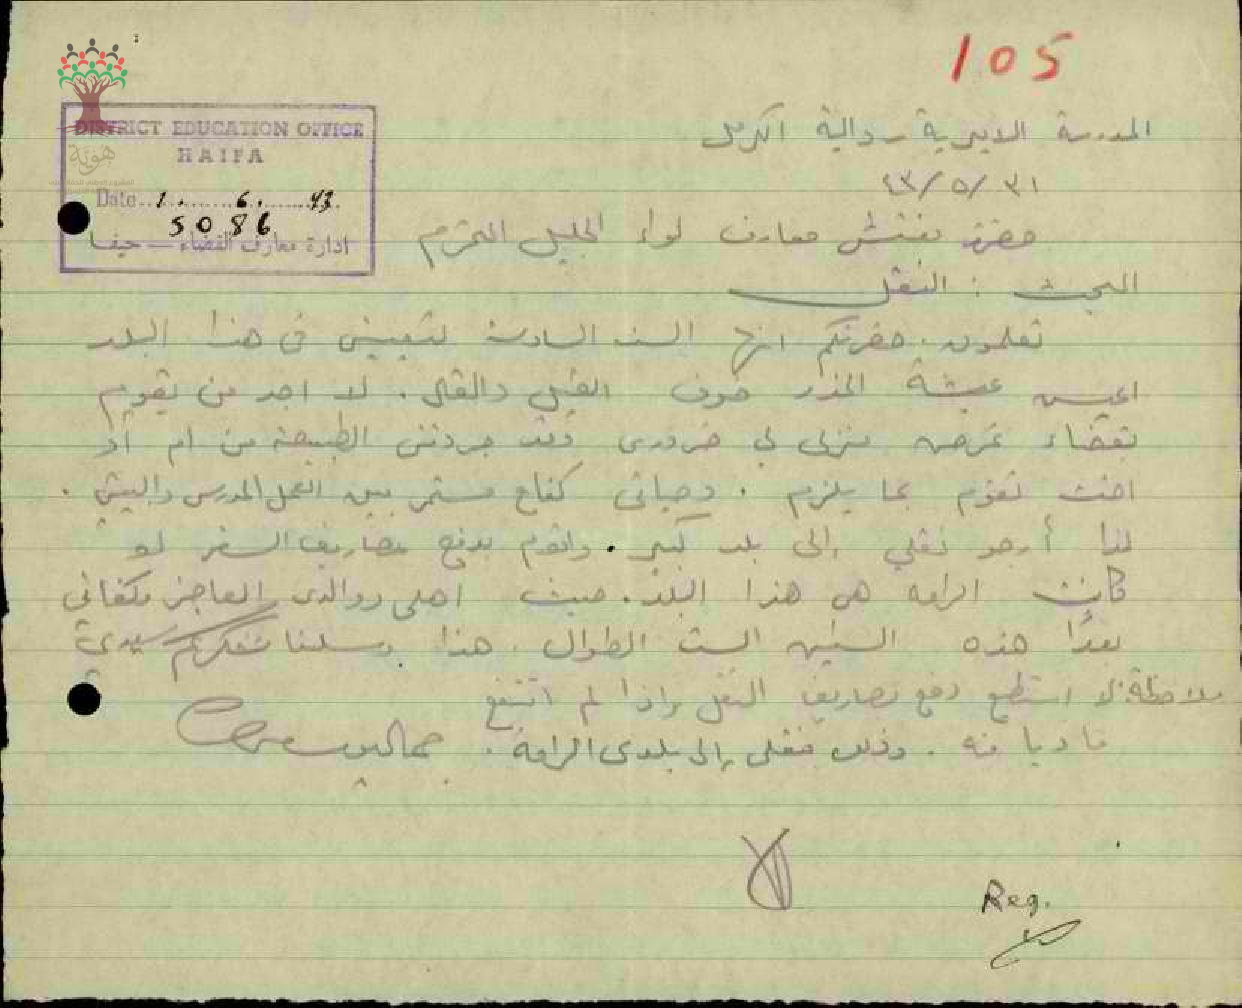 105
DISTRICT EDUCATION OFFICE
HAIFA
Date.. 1. 6. 43.
5086
ادارة معارف القضاء — حيفا
هوية
المدرسة الاميرية - دالية الكرمل
٤٣/٥/٣١
حضرة مفتش معارف لواء الجليل المحترم
البحث : النقل
تعلمون حضرتكم انها السنة السادسة لتعييني في هذا البلد
اعيش عيشة الحذر خوف القيل والقال . لا اجد من يقوم
بقضاء غرض منزلي لي ضروري وقد جردتني الطبيعة من ام أو
اخت تقوم بما يلزم . وحياتي كفاح مستمر بين العمل المدرسي والبيتي .
لذا أرجو نقلي إلى بلد كبير . واقوم بدفع مصاريف السفر لو
كانت الرامه هي هذا البلد . حيث اهلي ووالدي العاجز وكفاني
بعدًا هذه السنين الست الطوال . هذا وسلفا نشكركم سيدي
ملاحظة : لا استطيع دفع تصاريف النقل إذا لم انتفع
ماديا منه . وذلك بنقلي إلى بلدي الرامة .
لا
Reg.